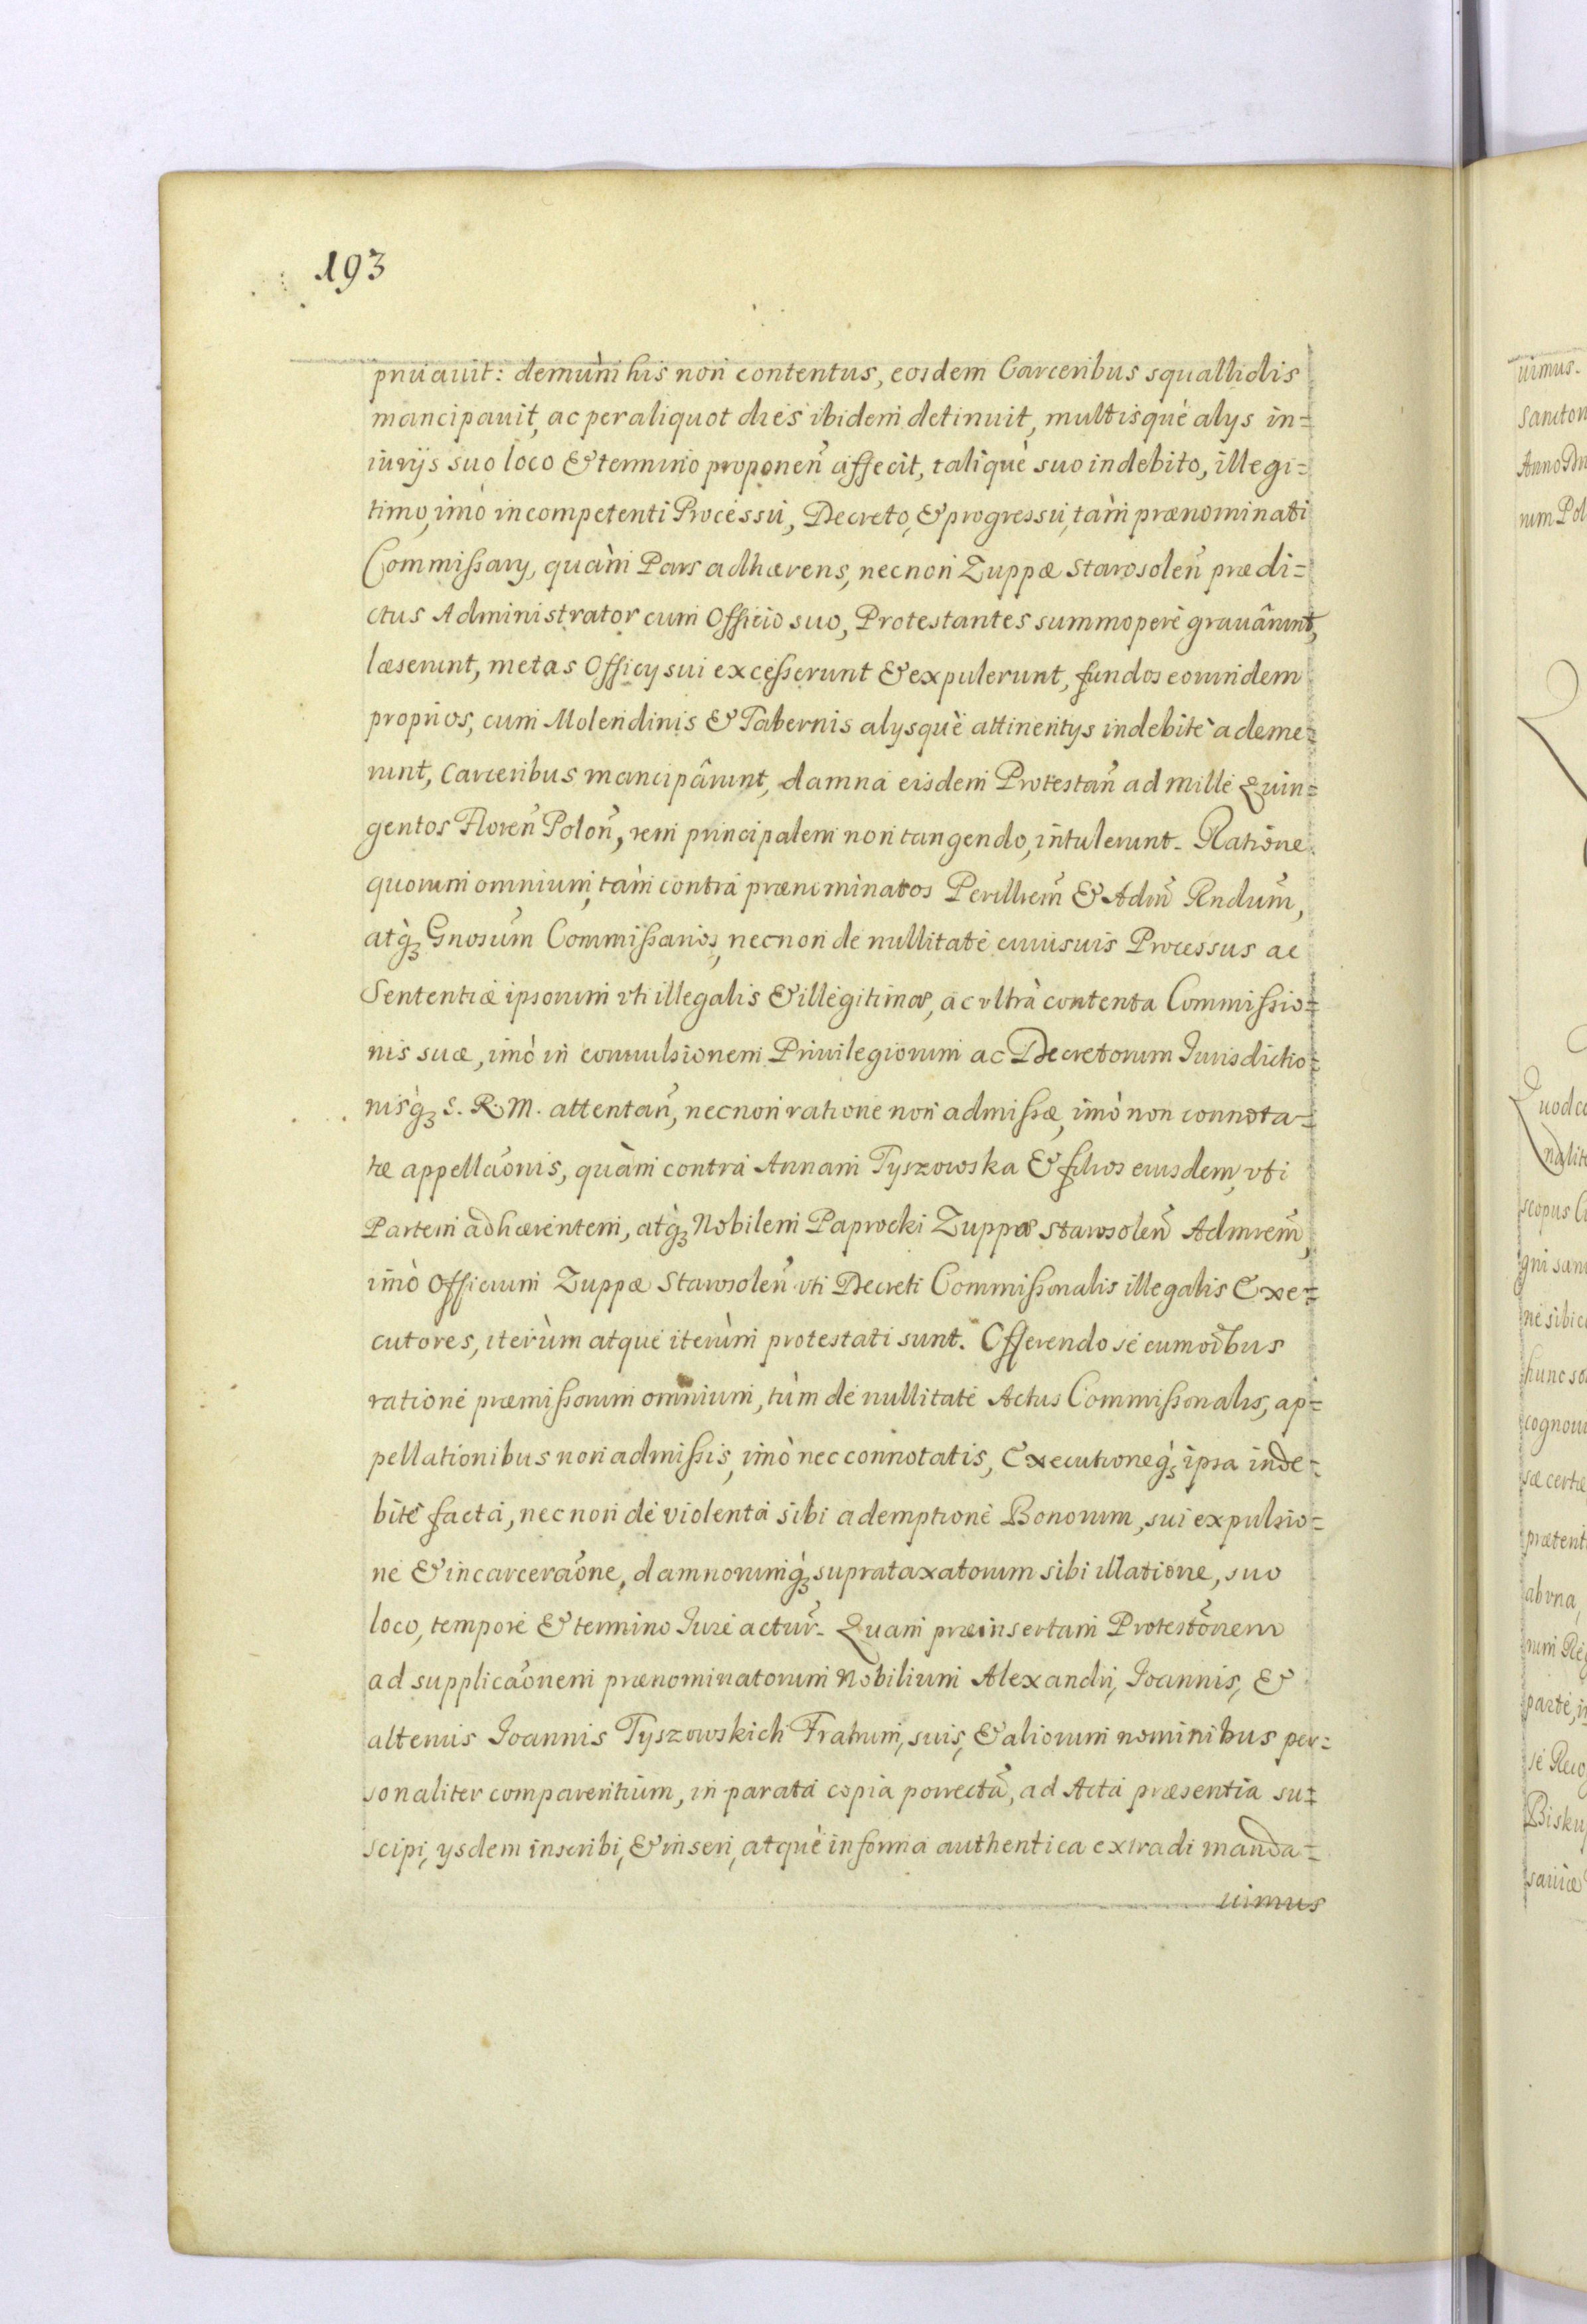 193
priuauit: demùm his non contentus, eosdem Carceribus squallidis
mancipauit, ac per aliquot dies ibidem detinuit, multisquè alys in=
iurijs suo loco & termino proponeñ affecit, taliquè suo indebito, illegi=
timo, imò incompetenti Processu, Decreto, & progressu, tàm prænominati
Commissarij, quàm Pars adhærens, necnon Zuppæ Starosoleñ prædi=
ctus Administrator cum Officio suo, Protestantes summoperè grauârunt,
læserunt, metas Officy sui excesserunt & expulerunt, fundos eorundem
proprios, cum Molendinis & Tabernis alysquè attinentys indebitè ademe=
runt, Carceribus mancipârunt, damna eisdem Protestañ ad mille Quin=
gentos Floreñ Poloñ, rem principalem non tangendo, intulerunt. Ratione
quorum omnium, tàm contra prænominatos Perillrem̃ & Adm̃ Rndum̃,
atq̀ꝫ Gnosum̃ Commissarios, necnon de nullitate cuiusuis Processus ac
Sententiæ ipsorum vti illegalis & illegitimæ, ac vltrà contenta Commissio=
nis suæ, imò in conuulsionem Priuilegiorum ac Decretorum Jurisdictio=
nisq̀ꝫ S. R. M. attentañ, necnon ratione non admissæ, imò non connota=
tæ appellaõnis, quàm contra Annam Tyszowska & filios eiusdem, vti
Partem adhærentem, atq̀ꝫ Nobilem Paprocki Zuppæ Starosoleñ Admrem̃,
imò Officium Zuppæ Starosoleñ vti Decreti Commissionalis illegalis Exe=
cutores, iterùm atque iterùm protestati sunt. Offerendo se eum oĩbus
ratione præmissorum omnium, tùm de nullitate Actus Commissionalis, ap=
pellationibus non admissis, imò nec connotatis, Executioneq̀ꝫ ipsa inde=
bitè facta, necnon de violenta sibi ademptione Bonorum, sui expulsio=
ne & incarceraõne, damnorumq̀ꝫ suprataxatorum sibi illatione, suo
loco, tempore & termino Jure actur̃. Quam præinsertam Protestõnem
ad supplicaõnem prænominatorum Nobilium Alexandri, Joannis, &
alterius Joannis Tyszowskich Fratrum, suis, & aliorum nominibus per=
sonaliter comparentium, in parata copia porrectã, ad Acta præsentia su=
scipi, ysdem inscribi, & inseri, atquè in forma authentica extradi manda=
uimus